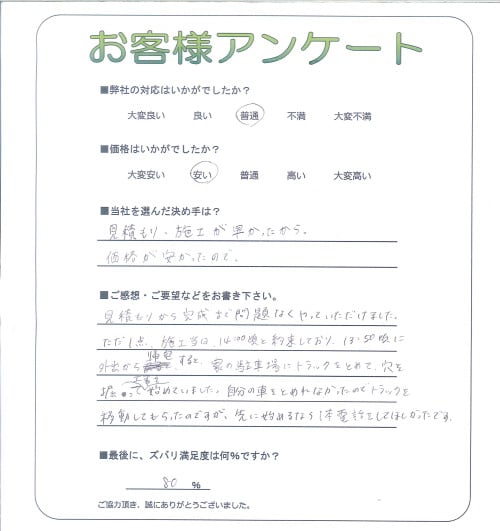 お客様アンケート
■弊社の対応はいかがでしたか?
大変良い 良い 普通 不満 大変不満
■価格はいかがでしたか?
大変安い 安い 普通 高い 大変高い
■当社を選んだ決め手は?
見積もり・施工が早かったから。
価格が安かったので。
■ご感想・ご要望などをお書き下さい。
見積もりから完成まで問題なくやっていただけました。
ただ1点、施工当日、14:00頃と約束しており、13:50頃に
外出から帰宅すると、家の駐車場にトラックをとめて、穴を
掘って始めていました。自分の車をとめれなかったのでトラックを
移動してもらったのですが、先に始めるなら1本電話をしてほしかったです。
■最後に、ズバリ満足度は何%ですか?
80 %
ご協力頂き、誠にありがとうございました。